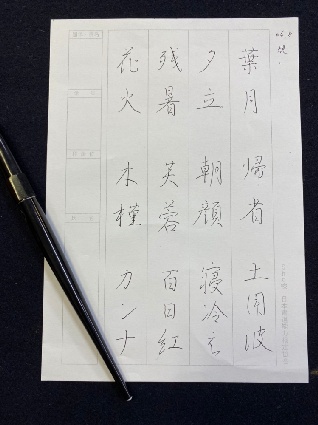 葉月 帰省 土用波
夕立 朝顔 寝冷え
残暑 芙蓉 百日紅
花火 木槿 カンナ